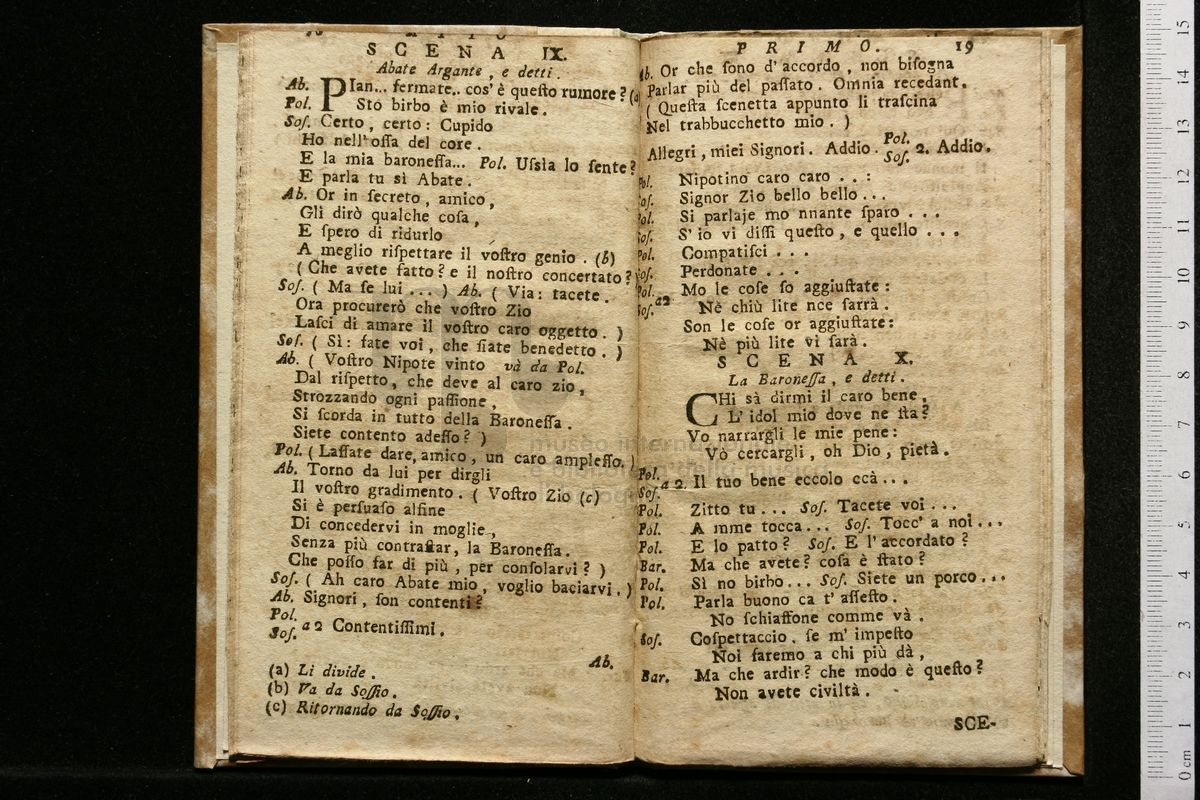 SCENA IX.
Abate Argante, e detti.
Ab. PIan... fermate.. cos' è queſto rumore? (a)
Pol. Sto birbo è mio rivale.
Soſ. Certo, certo: Cupido
Ho nell' oſſa del core.
E la mia baroneſſa... Pol. Uſsia lo ſente?
E parla tu sì Abate.
Ab. Or in ſecreto, amico,
Gli dirò qualche coſa,
E ſpero di ridurlo
A meglio riſpettare il voſtro genio. (b)
(Che avete fatto? e il noſtro concertato?
Soſ. (Ma ſe lui ...) Ab. (Via: tacete.
Ora procurerò che voſtro Zio
Laſci di amare il voſtro caro oggetto.)
Soſ. (Sì: fate voi, che ſiate benedetto.)
Ab. (Voſtro Nipote vinto và da Pol.
Dal riſpetto, che deve al caro zio,
Strozzando ogni paſſione,
Si ſcorda in tutto della Baroneſſa.
Siete contento adeſſo?)
Pol. (Laſſate dare, amico, un caro ampleſſo.)
Ab. Torno da lui per dirgli
Il voſtro gradimento. (Voſtro Zio (c)
Si è perſuaſo alfine
Di concedervi in moglie,
Senza più contraſtar, la Baroneſſa.
Che poſſo far di più, per conſolarvi?)
Soſ. (Ah caro Abate mio, voglio baciarvi.)
Ab. Signori, ſon contenti?
Pol.
Soſ. a 2 Contentiſſimi.
Ab.
(a) Li divide.
(b) Va da Soſſio.
(c) Ritornando da Soſſio.
PRIMO. 19
Ab. Or che ſono d' accordo, non biſogna
Parlar più del paſſato. Omnia recedant.
(Queſta ſcenetta appunto li traſcina
Nel trabbucchetto mio.)
Allegri, miei Signori. Addio. Pol. Soſ. 2. Addio.
Pol. Nipotino caro caro ..:
Soſ. Signor Zio bello bello...
Pol. Si parlaje mo nnante ſparo ...
Soſ. S' io vi diſſi queſto, e quello ...
Pol. Compatiſci ...
Soſ. Perdonate ...
Pol. Mo le coſe ſo aggiuſtate:
Soſ. a2 Nè chiù lite nce ſarrà.
Son le coſe or aggiuſtate:
Nè più lite vi ſarà.
SCENA X.
La Baroneſſa, e detti.
CHi sà dirmi il caro bene,
L' idol mio dove ne ſta?
Vo narrargli le mie pene:
Vò cercargli, oh Dio, pietà.
Pol.
Soſ. a 2 Il tuo bene eccolo ccà...
Pol. Zitto tu... Soſ. Tacete voi...
Pol. A mme tocca... Soſ. Tocc' a noi...
Pol. E lo patto? Soſ. E l' accordato?
Bar. Ma che avete? coſa è ſtato?
Pol. Sì no birbo... Soſ. Siete un porco...
Pol. Parla buono ca t' aſſeſto.
No ſchiaffone comme và.
Soſ. Coſpettaccio, ſe m' impeſto
Noi faremo a chi più dà,
Bar. Ma che ardir? che modo è queſto?
Non avete civiltà.
SCE-
museo internazionale
e biblioteca della musica
15
14
13
12
11
10
9
8
7
6
5
4
3
2
1
0 cm